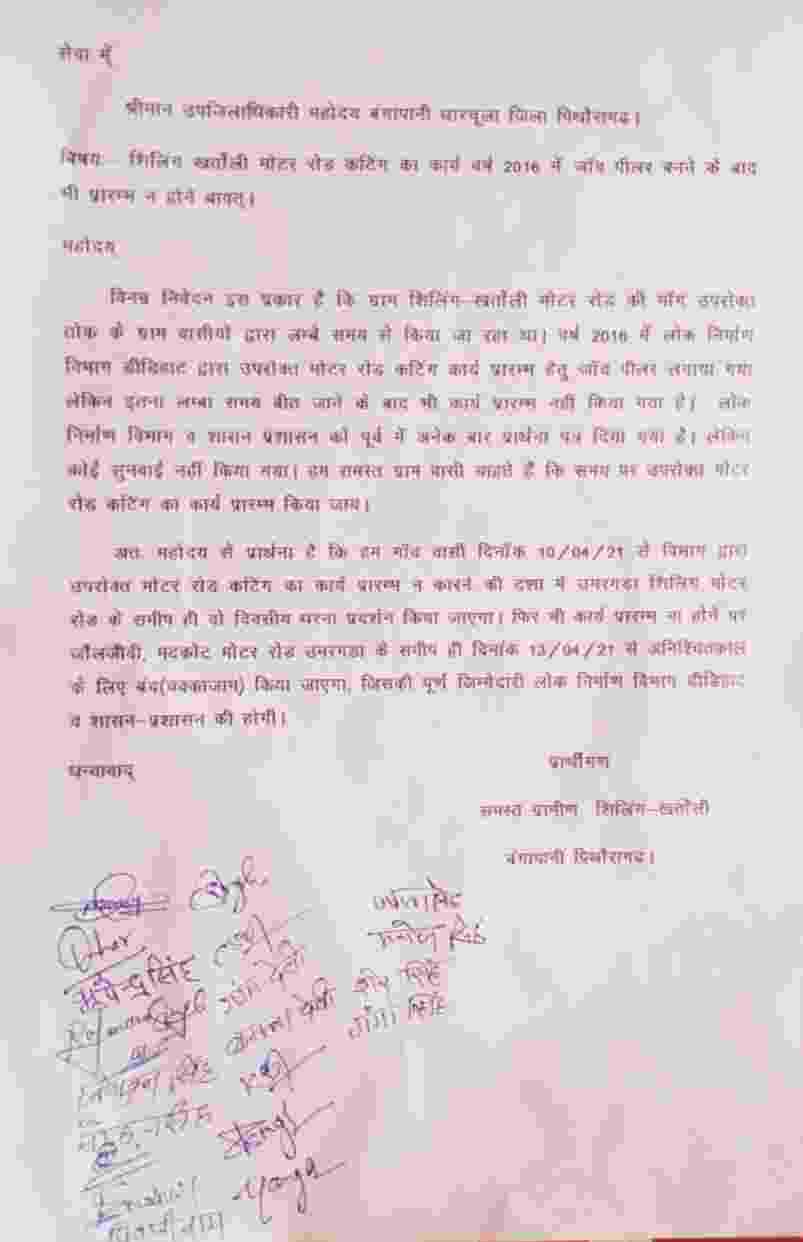 सेवा में
श्रीमान उपजिलाधिकारी महोदय बंगापानी धारचूला जिला पिथौरागढ।
विषय- शिलिंग खर्तोली मोटर रोड कटिंग का कार्य वर्ष 2016 में जॉच पीलर बनने के बाद
भी प्रारम्भ न होने बावत्।
महोदय
विनम्र निवेदन इस प्रकार है कि ग्राम शिलिंग-खर्तोली मोटर रोड की मॉग उपरोक्त
तोक के ग्राम वासीयों द्वारा लम्बे समय से किया जा रहा था। वर्ष 2016 में लोक निर्माण
विभाग डीडिहाट द्वारा उपरोक्त मोटर रोड कटिंग कार्य प्रारम्भ हेतु जॉच पीलर लगाया गया
लेकिन इतना लम्बा समय बीत जाने के बाद भी कार्य प्रारम्भ नहीं किया गया है। लोक
निर्माण विभाग व शासन प्रशासन को पूर्व में अनेक बार प्रार्थना पत्र दिया गया है। लेकिन
कोई सुनवाई नहीं किया गया। हम समस्त ग्राम वासी चाहते हैं कि समय पर उपरोक्त मोटर
रोड कटिंग का कार्य प्रारम्भ किया जाय।
अतः महोदय से प्रार्थना है कि हम गॉव वासी दिनॉक 10/04/21 से विभाग द्वारा
उपरोक्त मोटर रोड कटिंग का कार्य प्रारम्भ न कारने की दशा में उमरगडा शिलिंग मोटर
रोड के समीप ही दो दिवसीय धरना प्रदर्शन किया जाएगा। फिर भी कार्य प्रारम्भ ना होने पर
जौलजीवी, मदकोट मोटर रोड उमरगडा के समीप ही दिनॉक 13/04/21 से अनिश्चितकाल
के लिए बंद(चक्काजाम) किया जाएगा, जिसकी पूर्ण जिम्मेदारी लोक निर्माण विभाग डीडिहाट
व शासन-प्रशासन की होगी।
धन्यवाद्
प्रार्थीगण
समस्त ग्रामीण शिलिंग-खर्तोली
बंगापानी पिथौरागढ।
सिंह
देवी
देवी
वीर सिंह
सिंह
सिंह